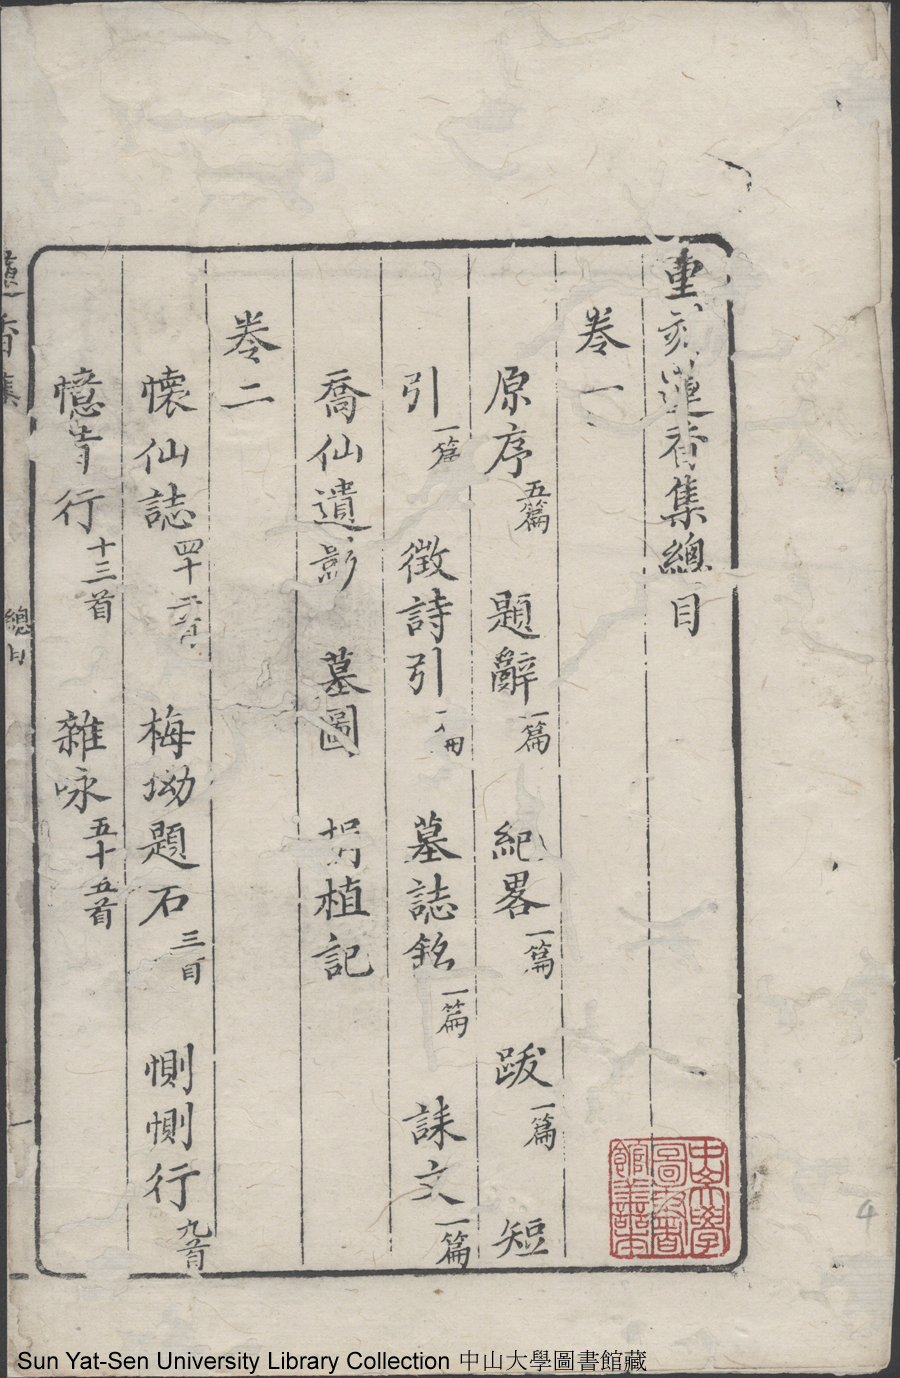 重刻蓮香集總目
卷一
原序五篇 題辭一篇 紀畧一篇 跋一篇 短
引一篇 徵詩引一篇 墓誌銘一篇 誄文一篇
喬仙遺影 墓圖 捐植記
卷二
懷仙誌四十二首 梅坳題石三首 惻惻行九首
憶昔行十三首 雜咏五十五首
蓮香集 總目 一
4
Sun Yat-Sen University Library Collection 中山大學圖書館藏